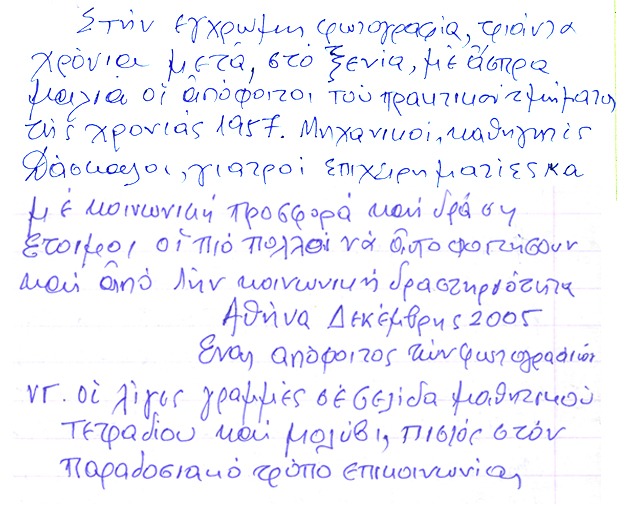 Στήν εγχρωμη φωτογραφία, τριάντα
χρόνια μετά, στό Ξενία, μέ ἄσπρα
μαλιά οἱ ἀπόφοιτοι τοῦ πρακτικοῦ τμήματος
τῆς χρονιάς 1957. Μηχανικοί, καθηγητές
Δάσκαλοι, γιατροί επιχειρηματίες κα
μέ κοινωνική προσφορά καί δράση
ετοιμοι οἱ πιό πολλοί νά ἀποφοιτήσουν
καί ἀπό τήν κοινωνική δραστηριότητα
Αθήνα Δεκέμβρης 2005
Ενας απόφοιτος τῶν φωτογραφιῶν
ΥΓ. οἱ λίγες γραμμές σέ σελίδα μαθητικοῦ
τετραδίου καί μολύβι, πιστός στόν
παραδοσιακό τρόπο επικοινωνίας